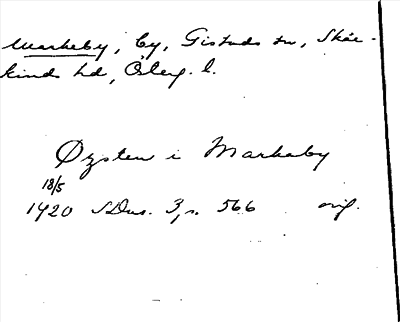 Markeby, by, Gistads sn, Skär-
kinds hd, Ö.terg. l.
Øysten i Markaby
18/5
1420 SDns. 3, s. 566 orig.